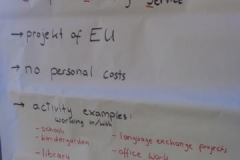 Service
→ projekt of EU
→ no personal costs
→ activity examples:
working in/with
- school
- kindergarden
- library
- language exchange projects
- office work